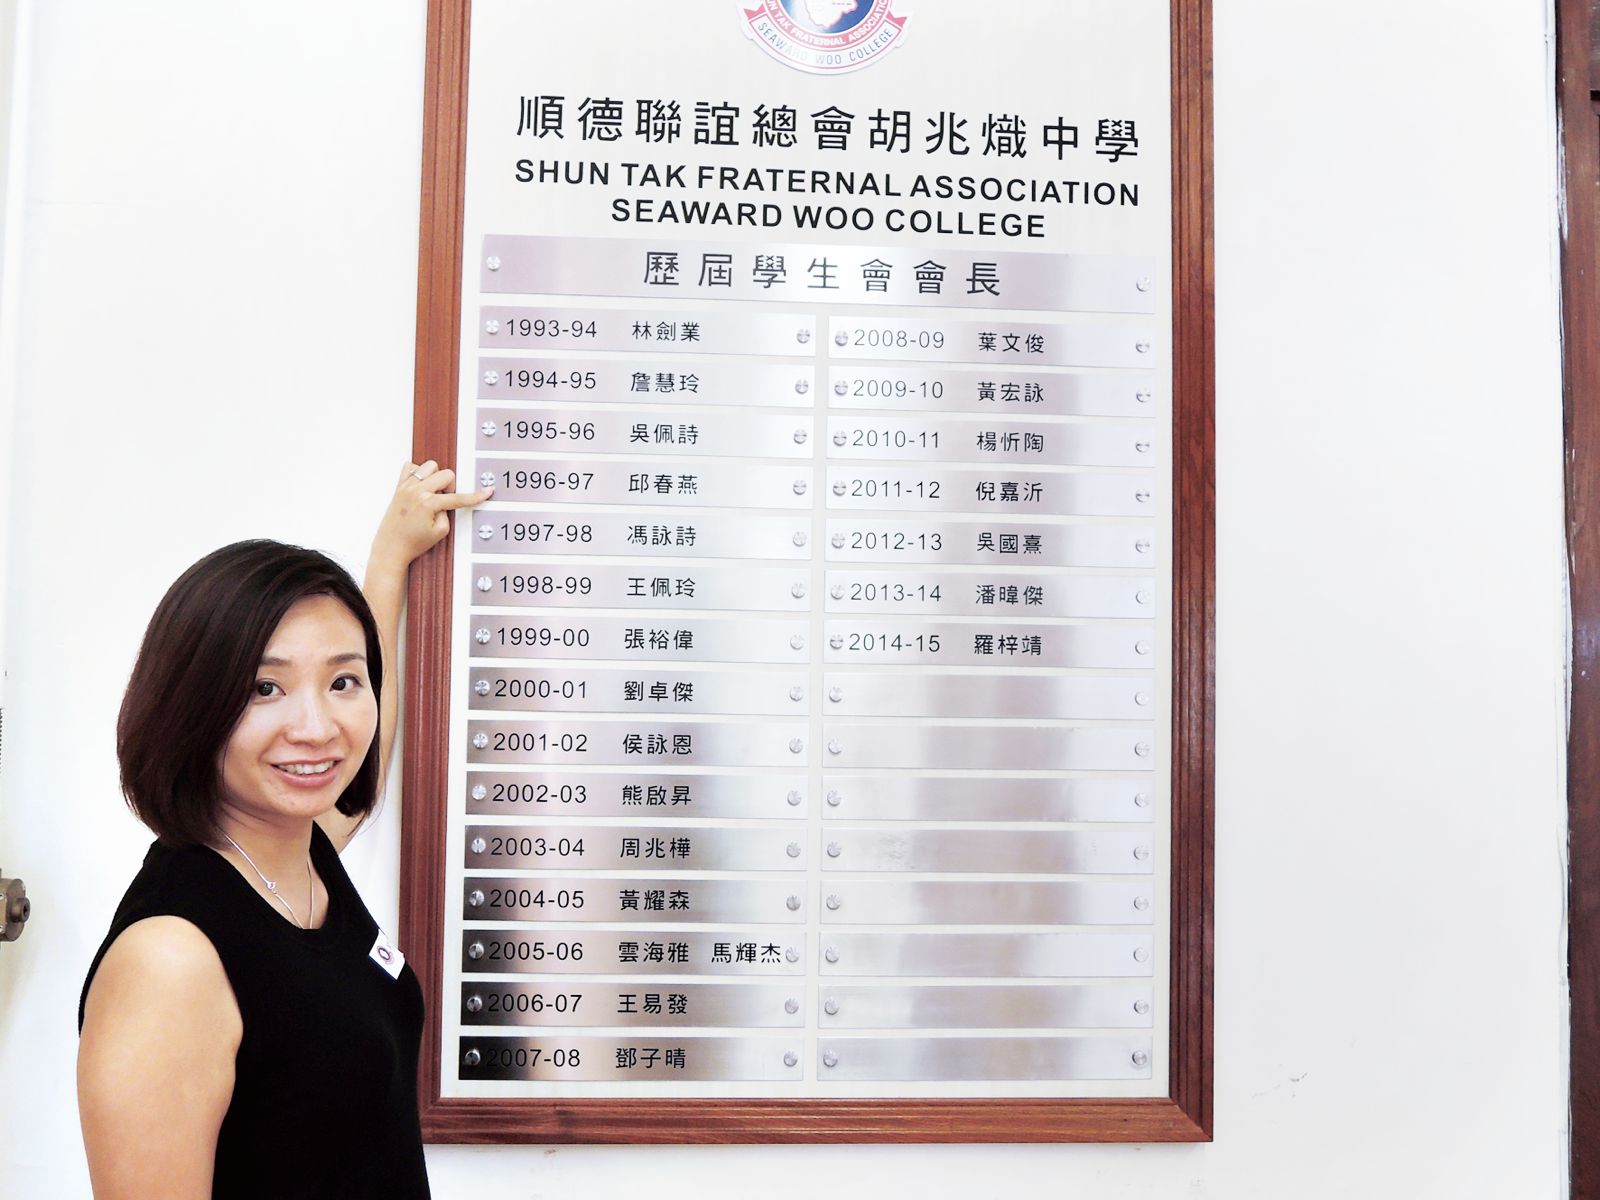 SHUN TAK FRATERNAL ASSOCIATION
SEAWARD WOO COLLEGE
順德聯誼總會胡兆熾中學
SHUN TAK FRATERNAL ASSOCIATION
SEAWARD WOO COLLEGE
歷屆學生會會長
1993-94 林劍業
1994-95 詹慧玲
1995-96 吳佩詩
1996-97 邱春燕
1997-98 馮詠詩
1998-99 王佩玲
1999-00 張裕偉
2000-01 劉卓傑
2001-02 侯詠恩
2002-03 熊啟昇
2003-04 周兆樺
2004-05 黃耀森
2005-06 雲海雅 馬輝杰
2006-07 王易發
2007-08 鄧子晴
2008-09 葉文俊
2009-10 黃宏詠
2010-11 楊忻陶
2011-12 倪嘉沂
2012-13 吳國熹
2013-14 潘暐傑
2014-15 羅梓靖